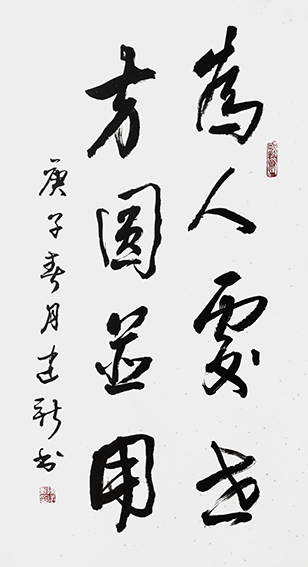 為人處世
方圓並用
庚子春月建新書